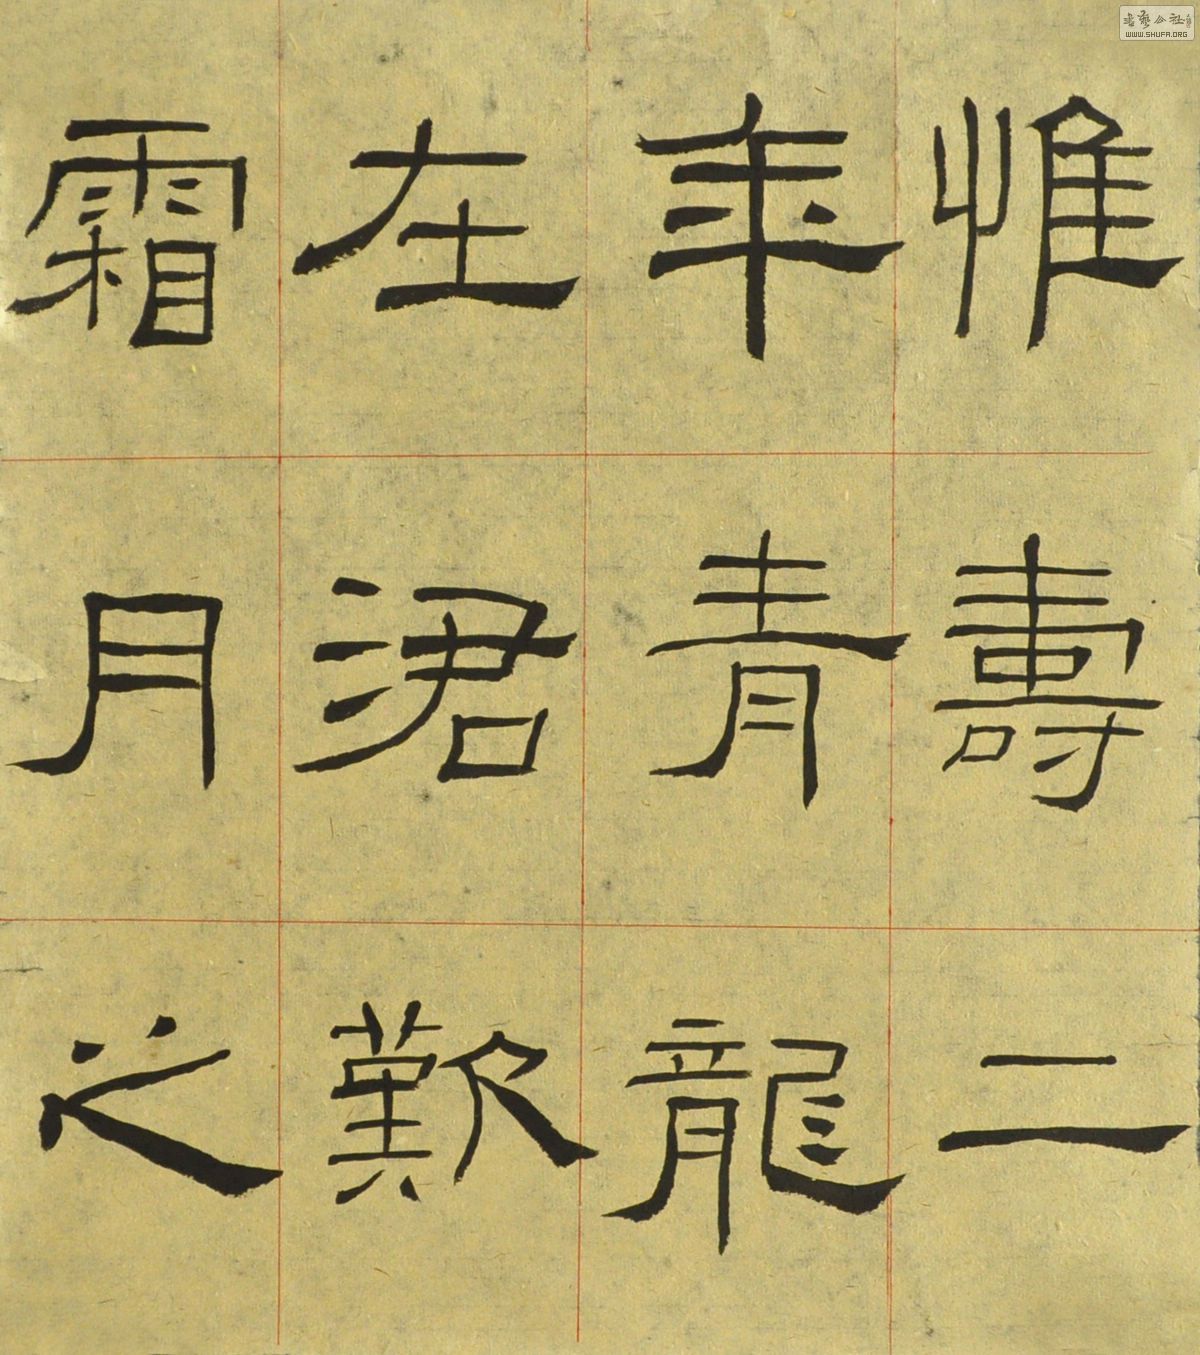 惟壽二
年青龍
在涒歎
霜月之
书艺公社
WWW.SHUFA.ORG